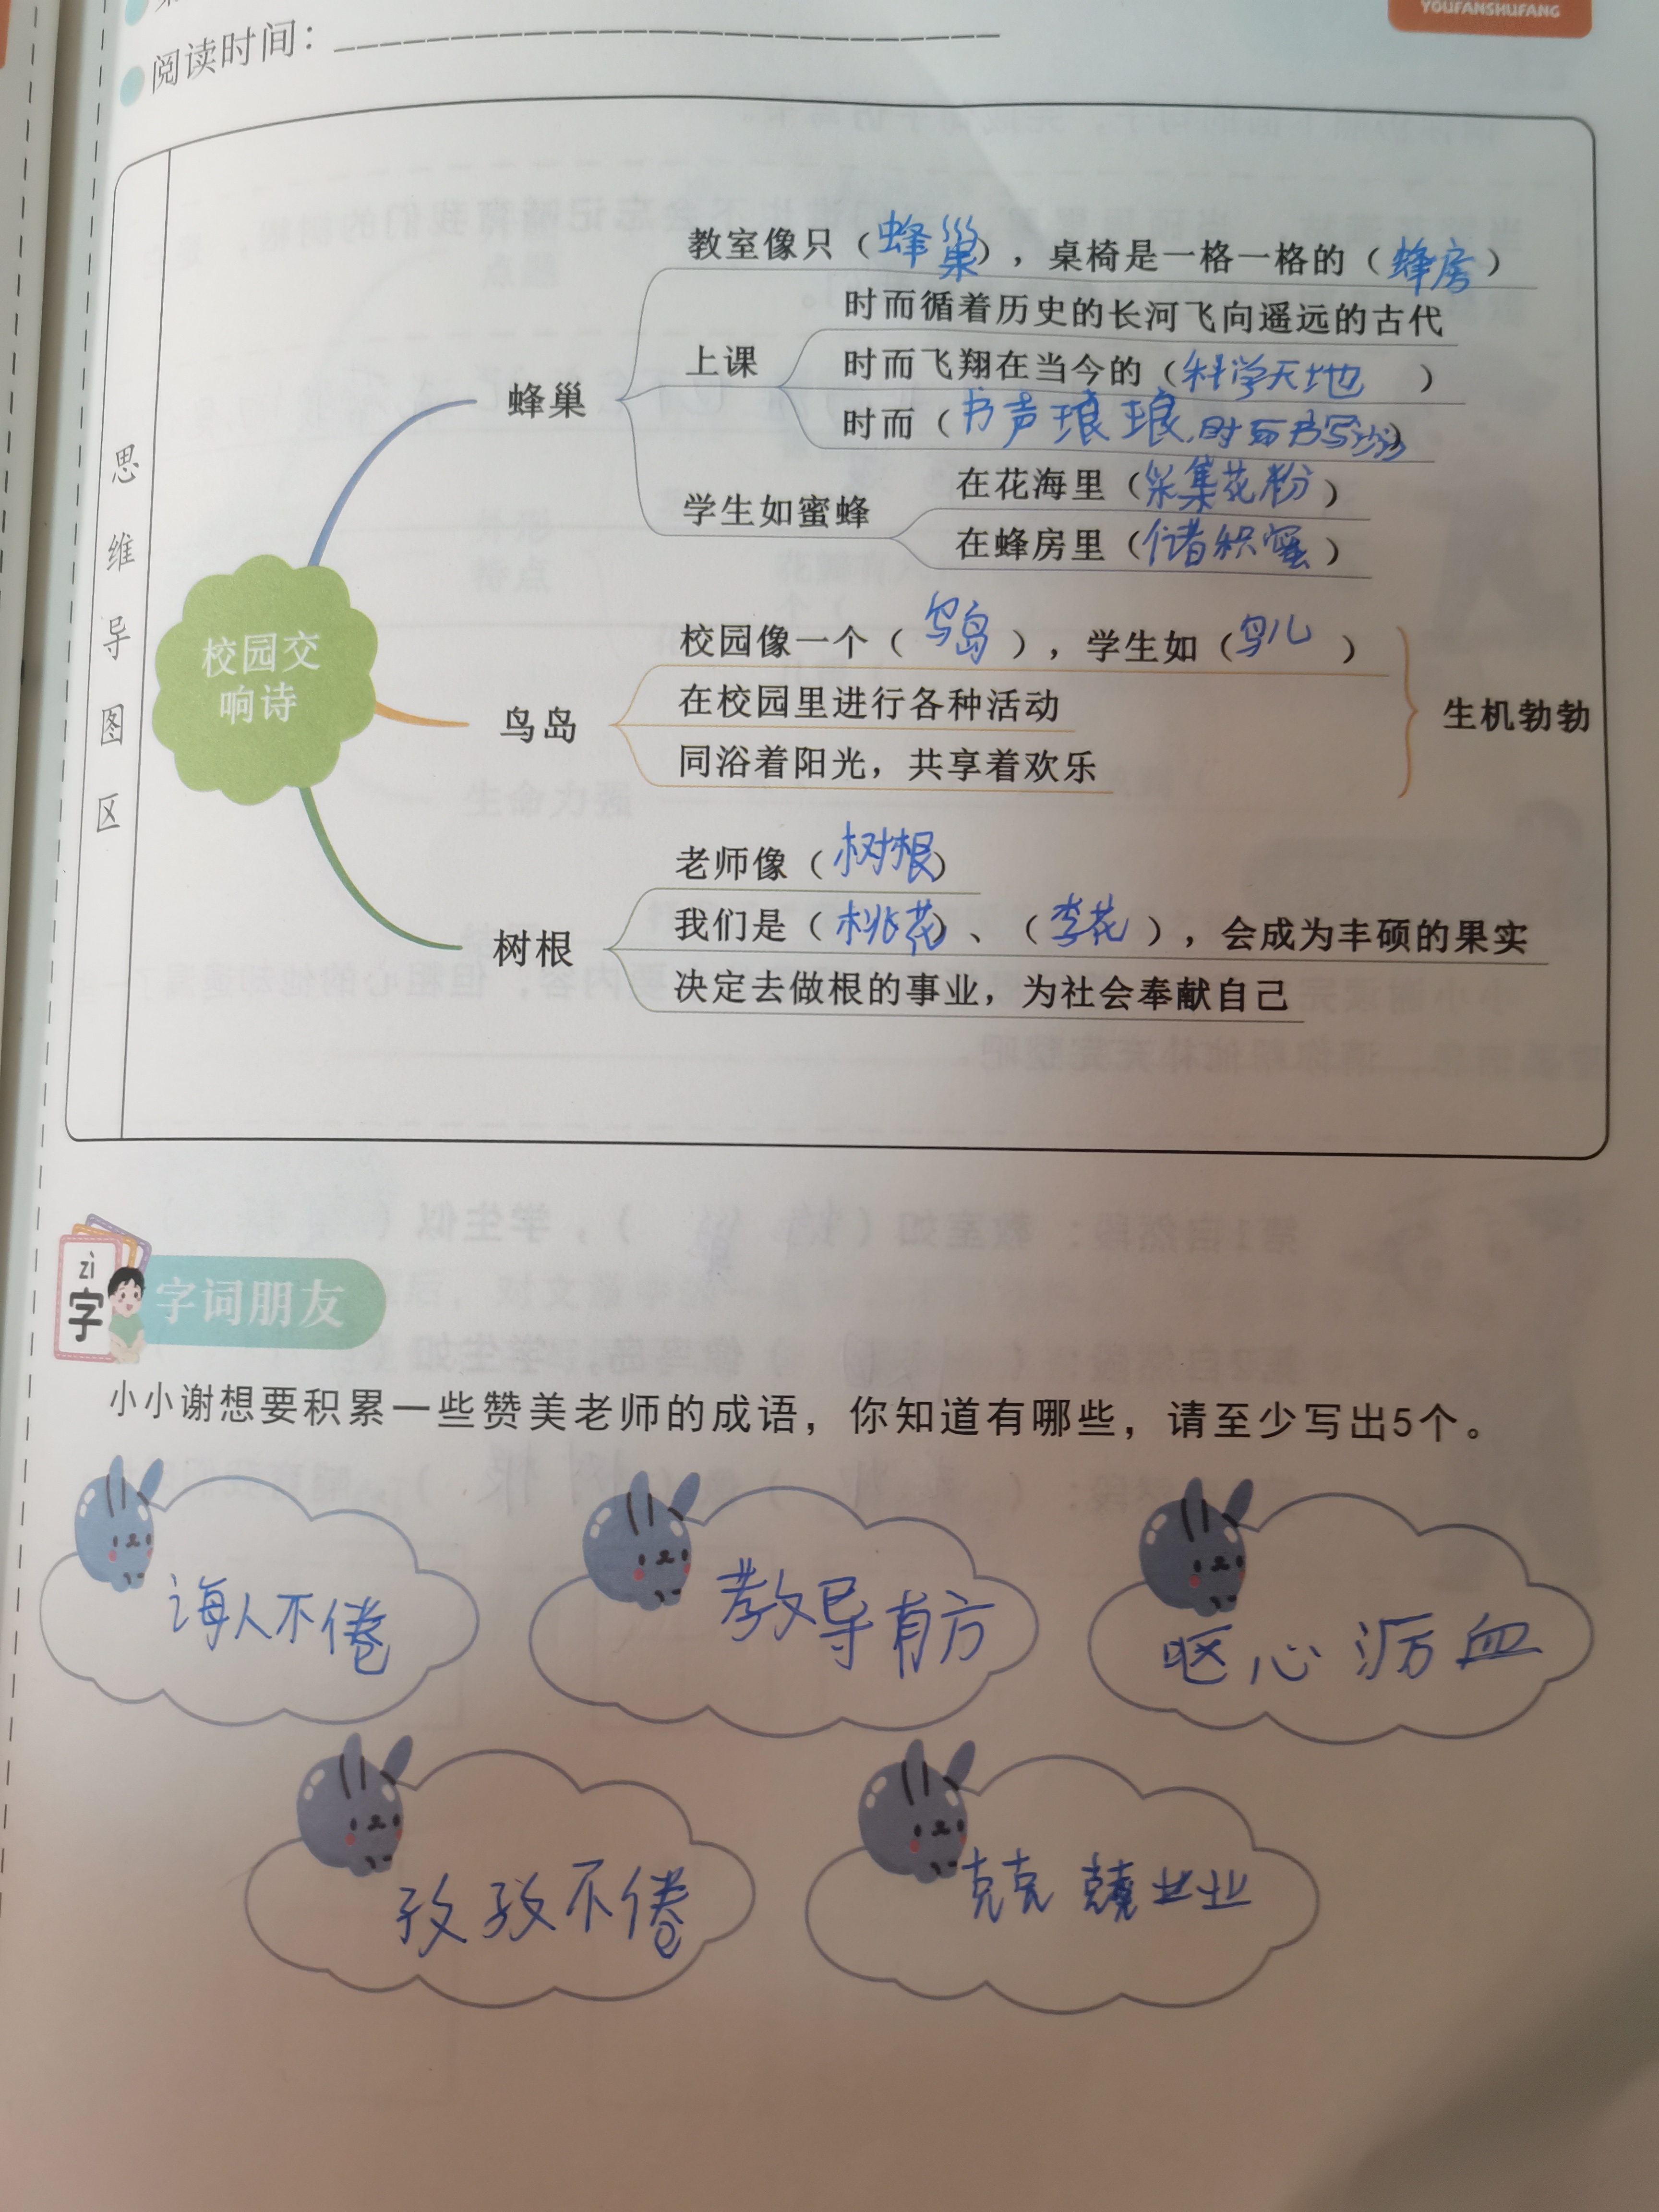 YOUFANSHUFANG
阅读时间：
思维导图区
校园交响诗
蜂巢
教室像只（蜂巢），桌椅是一格一格的（蜂房）
上课
时而循着历史的长河飞向遥远的古代
时而飞翔在当今的（科学天地）
时而（书声琅琅,时而书写沙沙）
学生如蜜蜂
在花海里（采集花粉）
在蜂房里（储积蜜）
鸟岛
校园像一个（鸟岛），学生如（鸟儿）
在校园里进行各种活动
同浴着阳光，共享着欢乐
生机勃勃
树根
老师像（树根）
我们是（桃花）、（李花），会成为丰硕的果实
决定去做根的事业，为社会奉献自己
zì
字
字词朋友
小小谢想要积累一些赞美老师的成语，你知道有哪些，请至少写出5个。
诲人不倦
教导有方
呕心沥血
孜孜不倦
兢兢业业